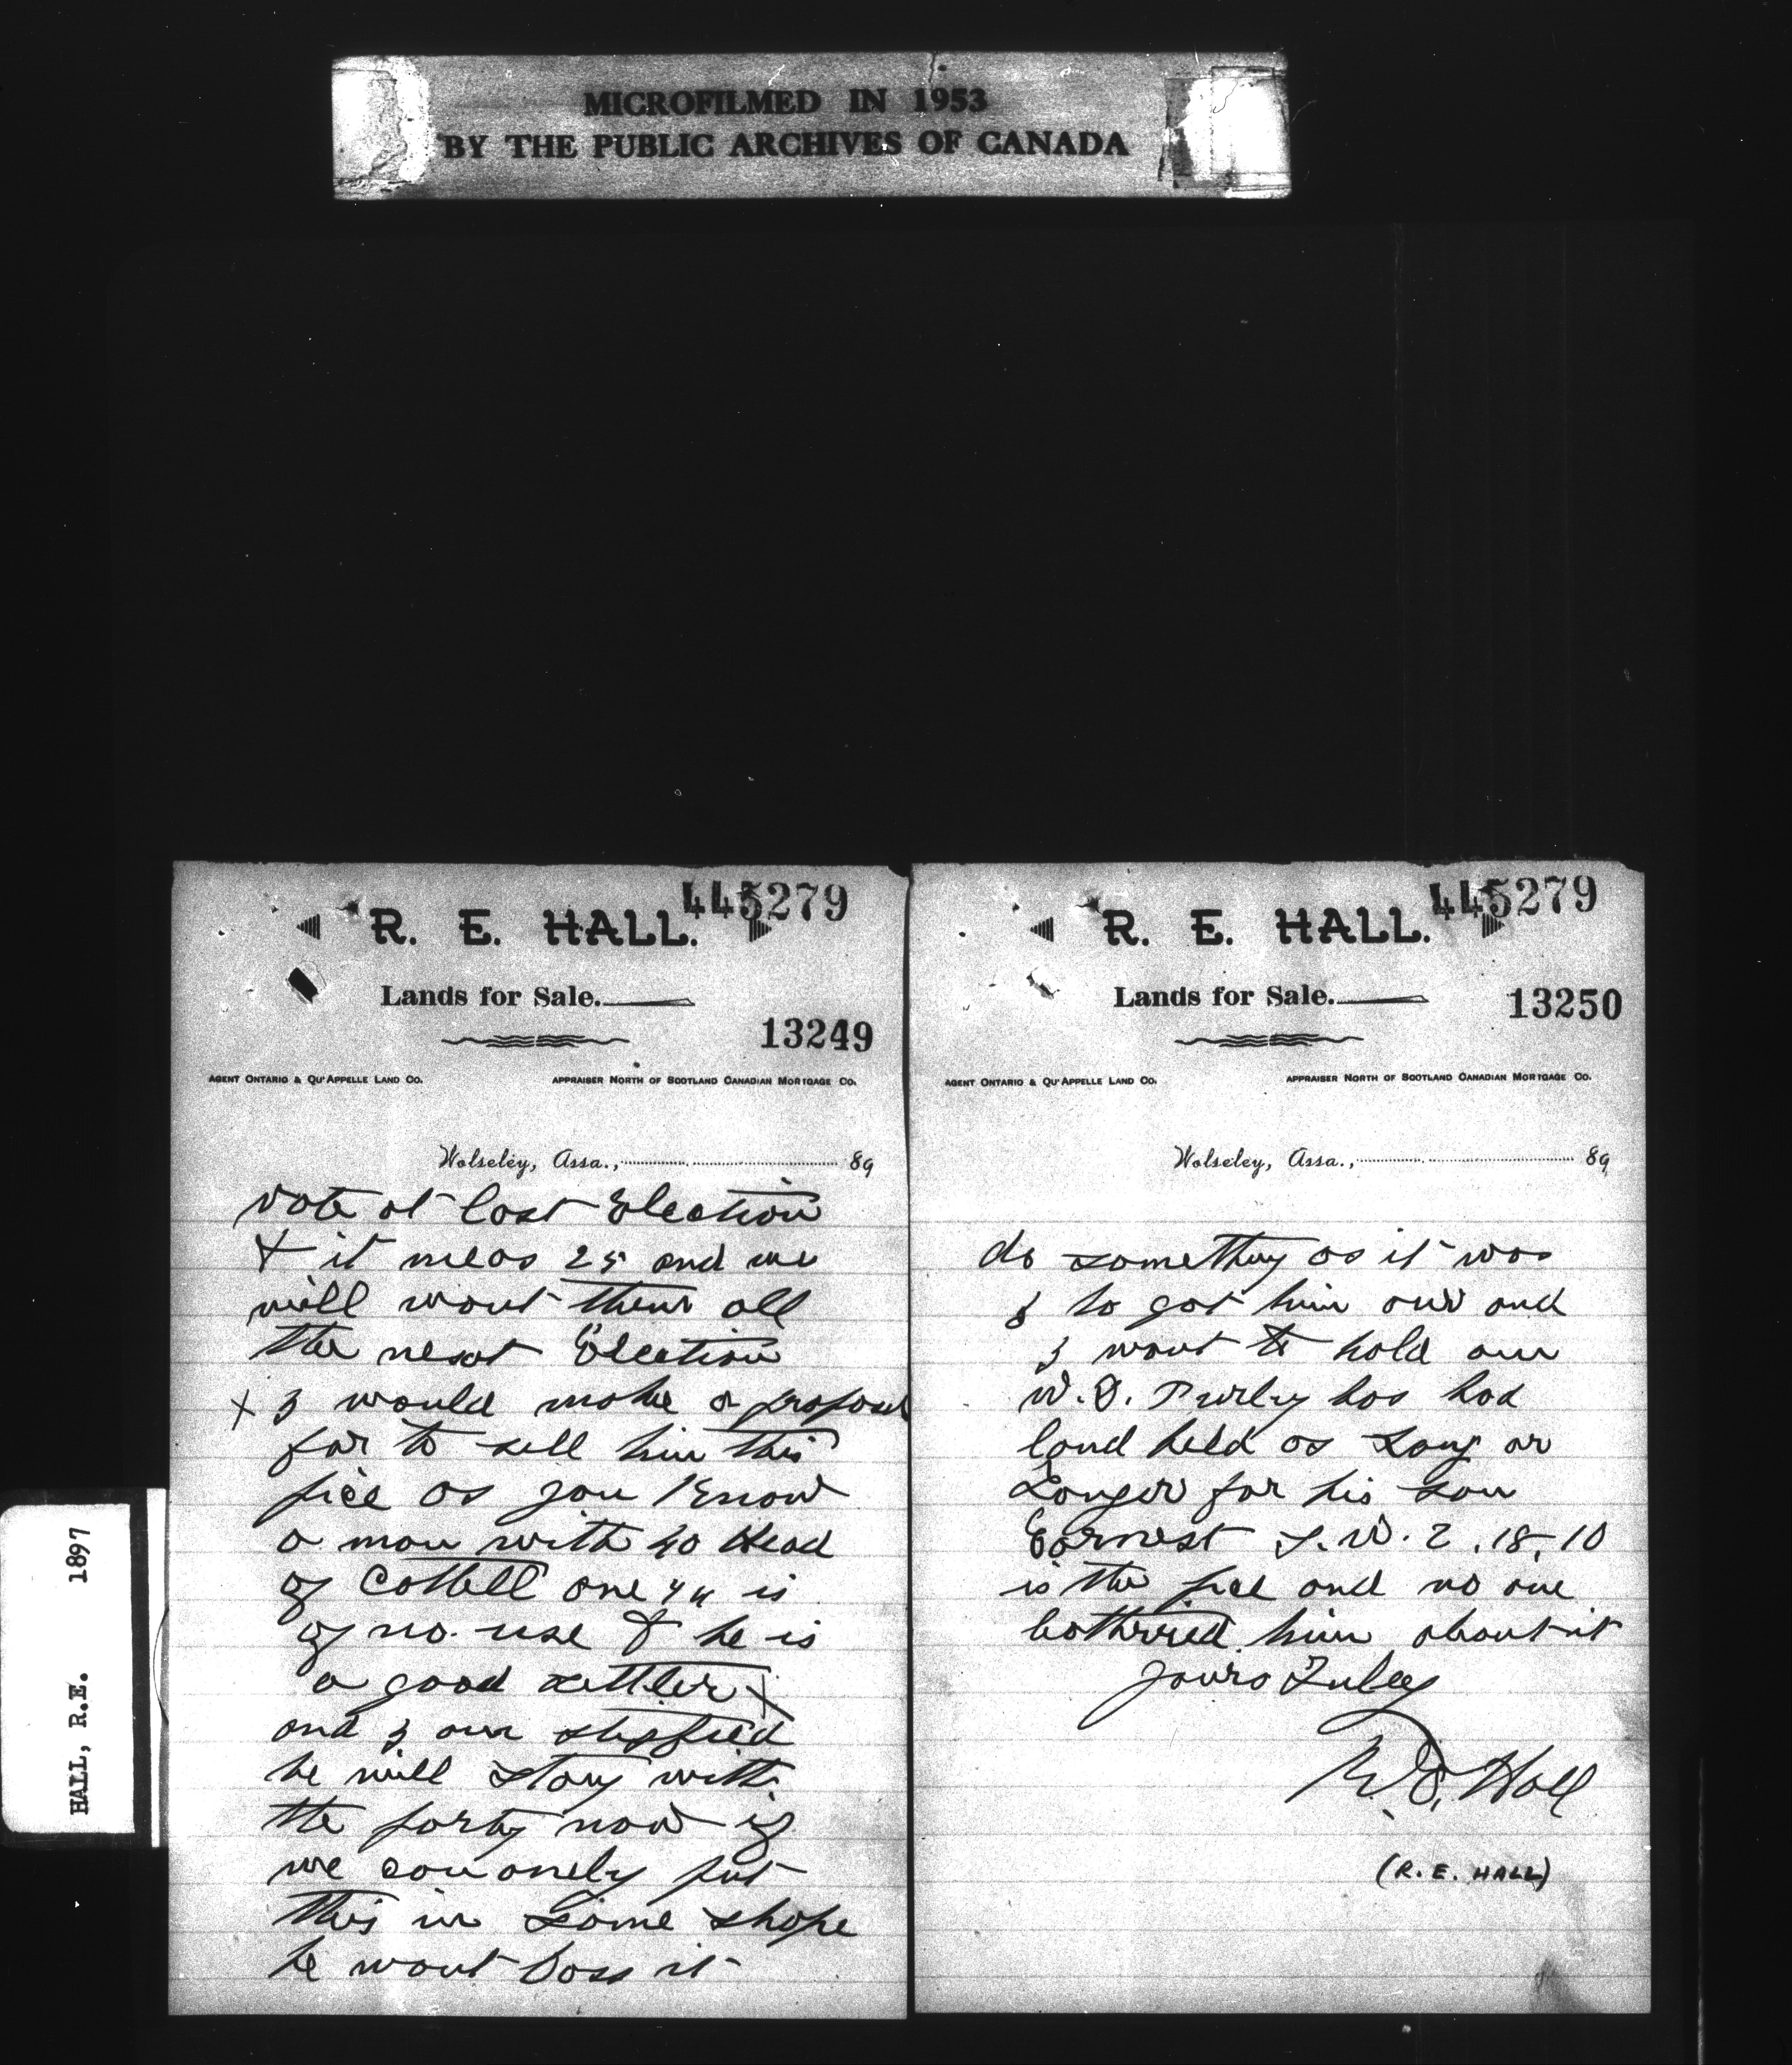 MICROFILMED IN 1953
BY THE PUBLIC ARCHIVES OF CANADA
HALL, R.E. 1897
445279
R. E. HALL.
Lands for Sale.
13249
AGENT ONTARIO & QU'APPELLE LAND CO. APPRAISER NORTH OF SCOTLAND CANADIAN MORTGAGE CO.
Wolseley, Assa., 89
vote at last Election
& it meas 25 and we
will want them all
the next Election
X I would make a
for to sell him this
pice as you Know
a man with 40 Head
of Cattell one 1/4 is
of no use & he is
a good settler X
and I am
he will stay with
the party now if
we can onely put
this in some shape
he wont Loss it
445279
R. E. HALL.
Lands for Sale.
13250
AGENT ONTARIO & QU'APPELLE LAND CO. APPRAISER NORTH OF SCOTLAND CANADIAN MORTGAGE CO.
Wolseley, Assa., 89
do something as it was
I to got him and
I want to hold
W.D. Purley has had
land held as Long or
Longer for his son
Earnest S.W. 2, 18, 10
is the pice and no one
botherred him about it
yours Truley
R.E. Hall
(R. E. HALL)